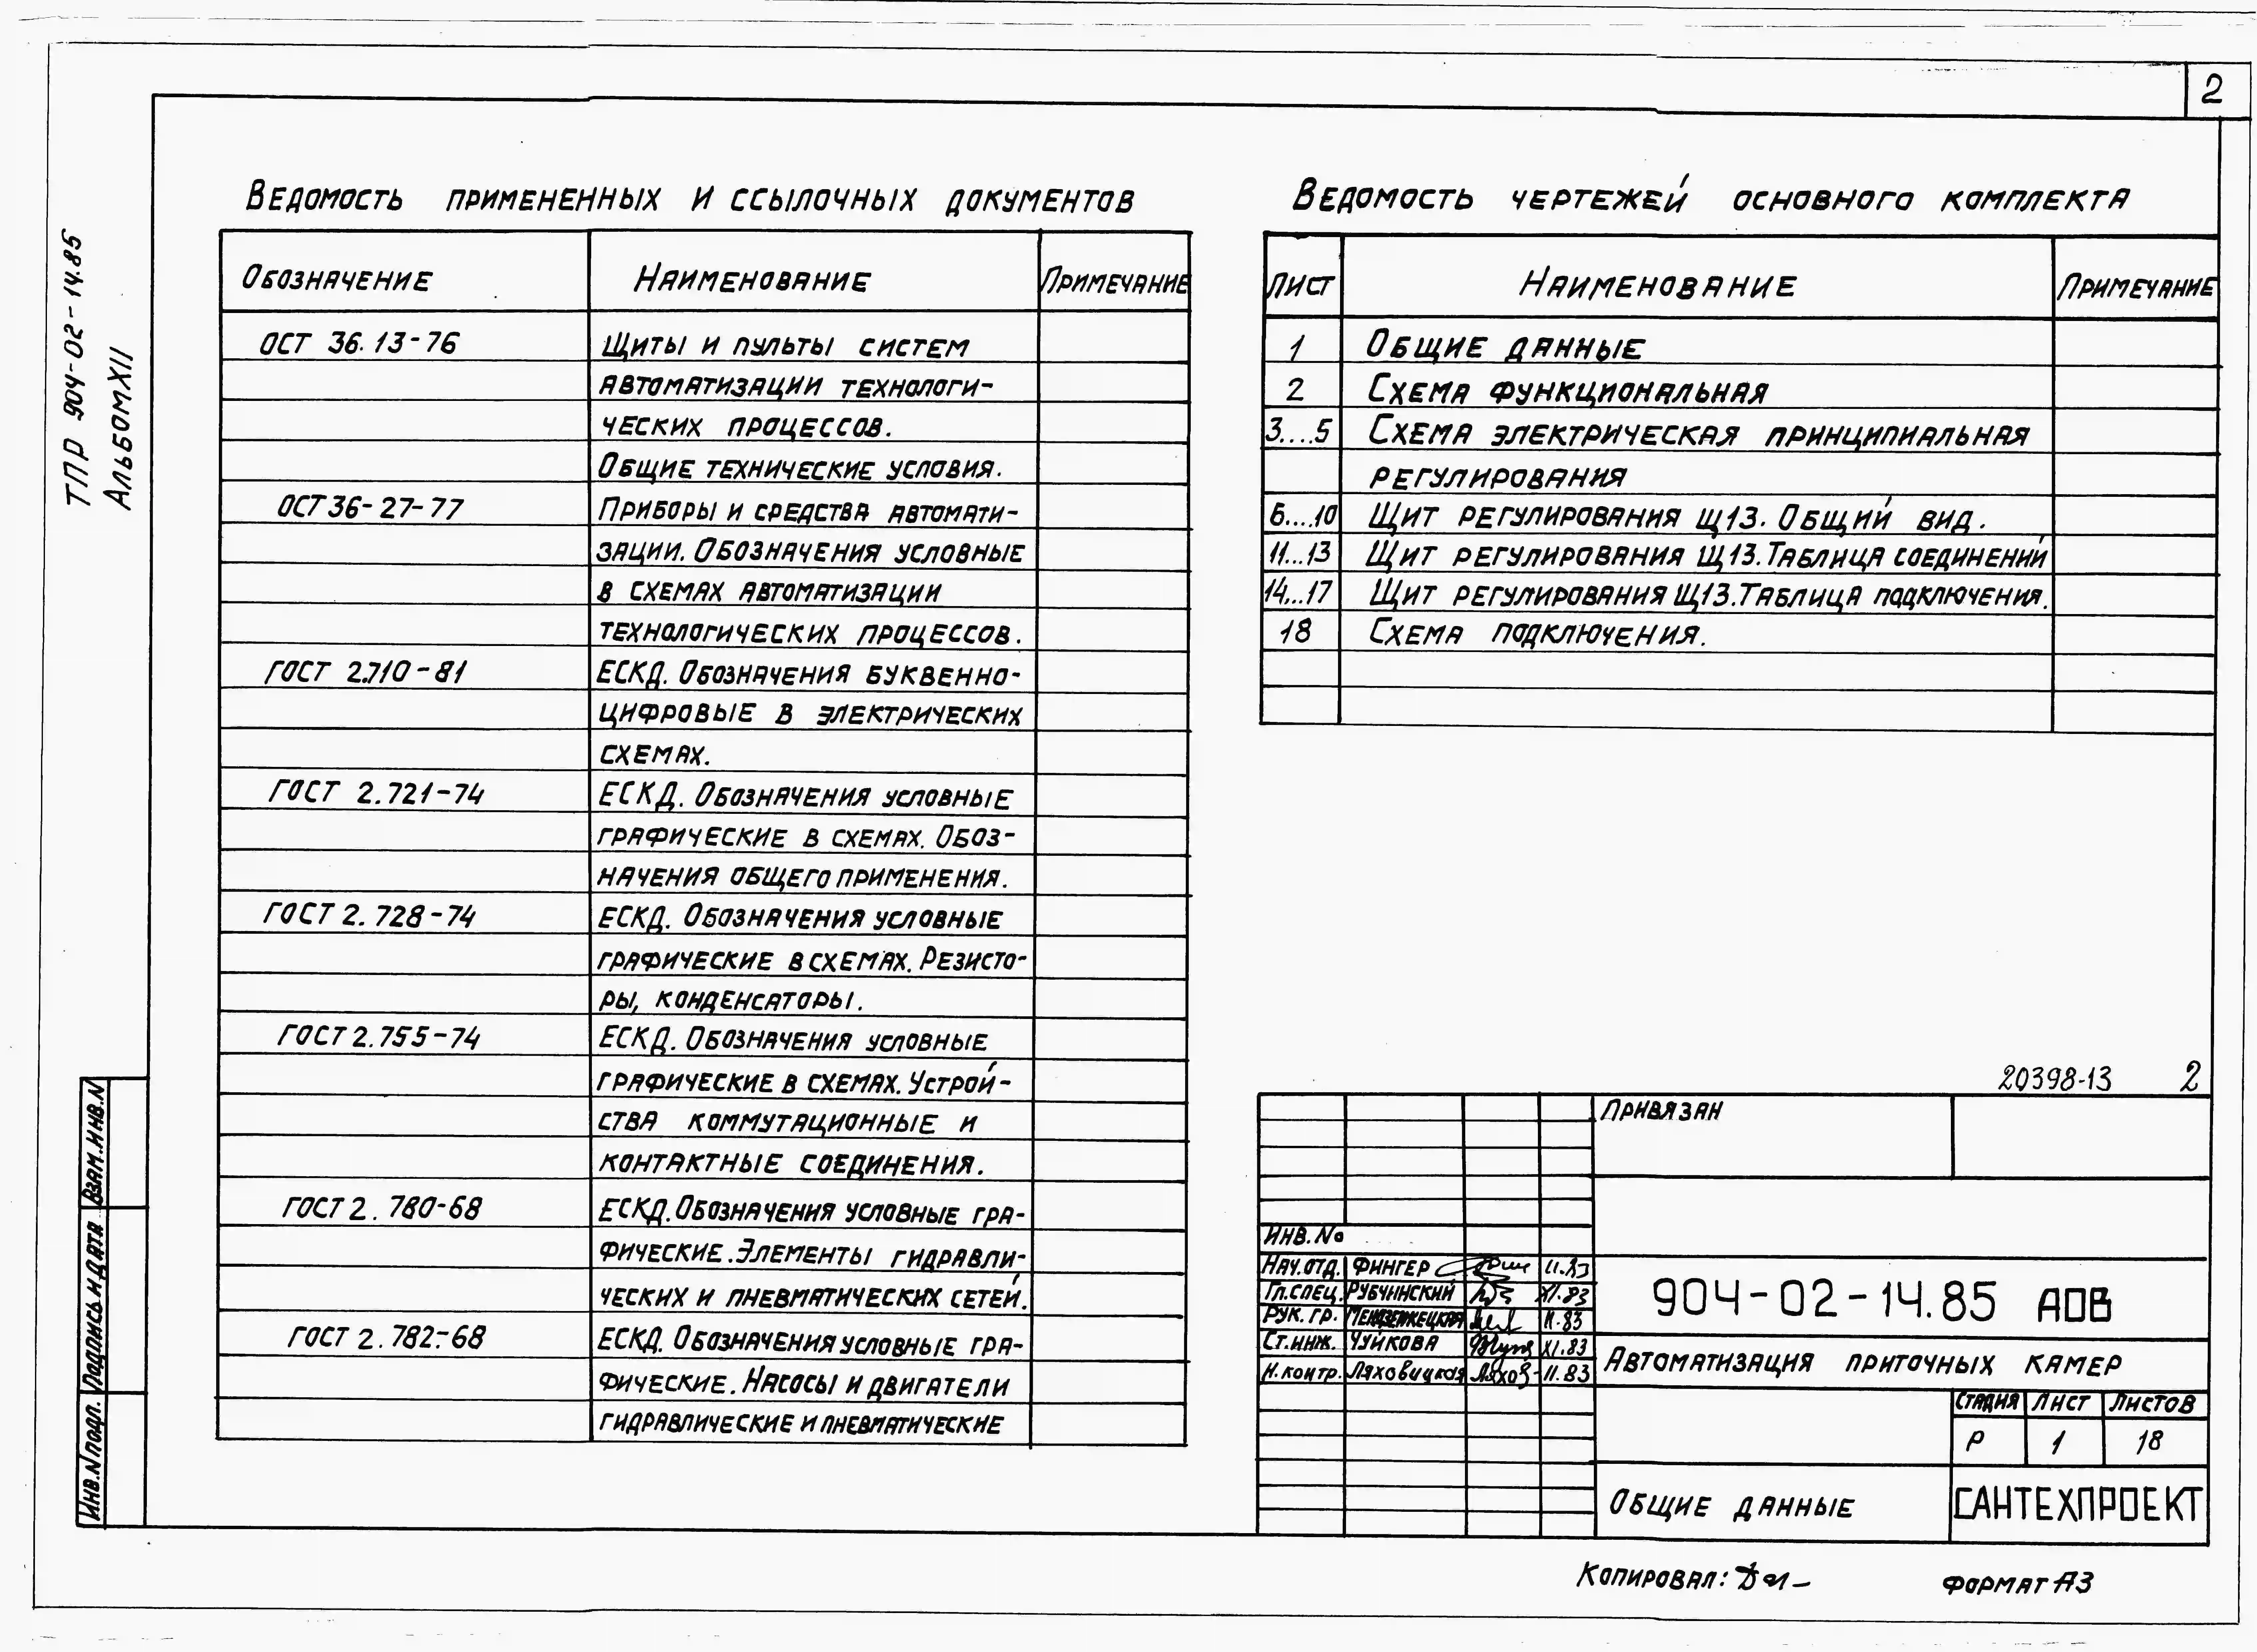 2
ТПР 904-02-14.85
Альбом XII
Ведомость примененных и ссылочных документов
Обозначение Наименование Примечание
ОСТ 36.13-76 Щиты и пульты систем
автоматизации технологи-
ческих процессов.
Общие технические условия.
ОСТ 36-27-77 Приборы и средства автомати-
зации. Обозначения условные
в схемах автоматизации
технологических процессов.
ГОСТ 2.710-81 ЕСКД. Обозначения буквенно-
цифровые в электрических
схемах.
ГОСТ 2.721-74 ЕСКД. Обозначения условные
графические в схемах. Обоз-
начения общего применения.
ГОСТ 2.728-74 ЕСКД. Обозначения условные
графические в схемах. Резисто-
ры, конденсаторы.
ГОСТ 2.755-74 ЕСКД. Обозначения условные
графические в схемах. Устрой-
ства коммутационные и
контактные соединения.
ГОСТ 2.780-68 ЕСКД. Обозначения условные гра-
фические. Элементы гидравли-
ческих и пневматических сетей.
ГОСТ 2.782-68 ЕСКД. Обозначения условные гра-
фические. Насосы и двигатели
гидравлические и пневматические
Ведомость чертежей основного комплекта
Лист Наименование Примечание
1 Общие данные
2 Схема функциональная
3....5 Схема электрическая принципиальная
регулирования
6....10 Щит регулирования Щ13. Общий вид.
11...13 Щит регулирования Щ13. Таблица соединений
14...17 Щит регулирования Щ13. Таблица подключения.
18 Схема подключения.
20398-13 2
Привязан
Инв. №
Нач. отд. Фингер 11.83
Гл. спец. Рубчинский XI.83
Рук. гр. 11.83
Ст. инж. Чуйкова XI.83
Н. контр. Ляховицкая 11.83
904-02-14.85 АОВ
Автоматизация приточных камер
Стадия Лист Листов
Р 1 18
Общие данные
САНТЕХПРОЕКТ
Взам. инв. N
Подпись и дата
Инв. N подл.
Копировал: Формат А3